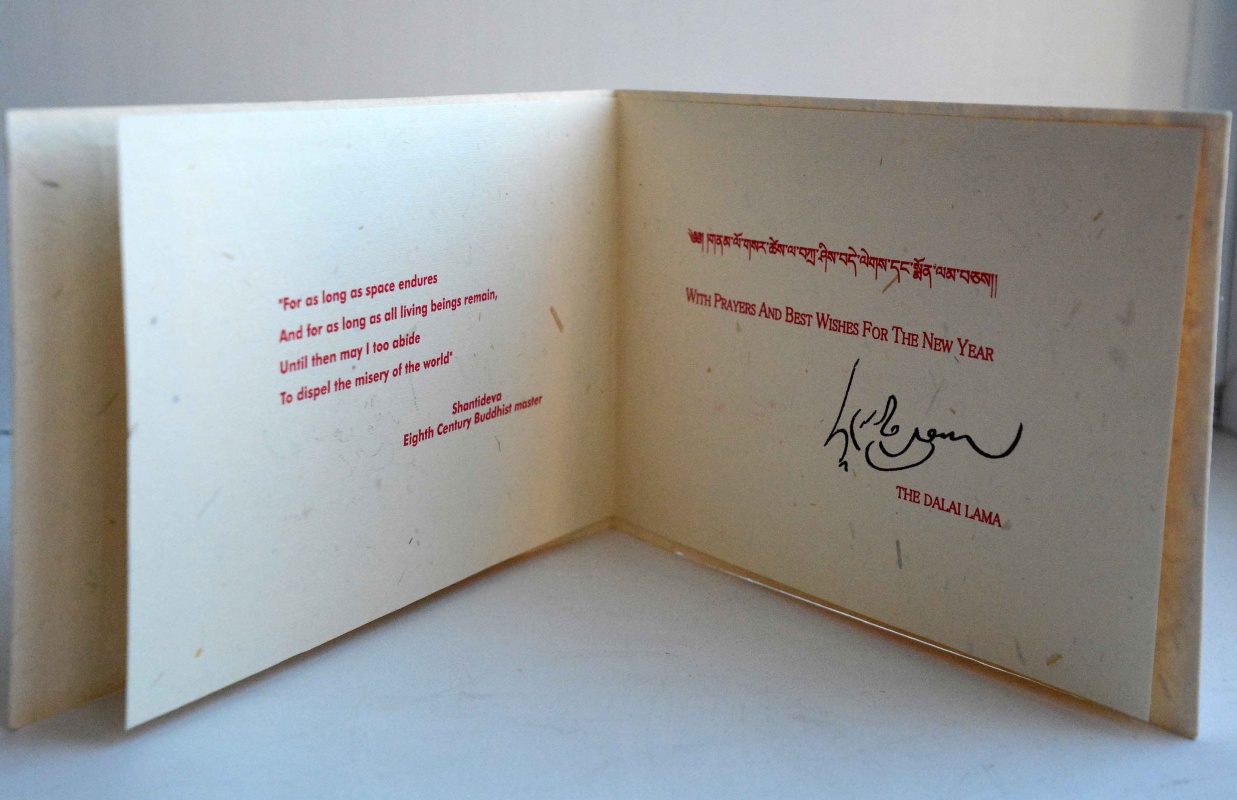 "For as long as space endures
And for as long as all living beings remain,
Until then may I too abide
To dispel the misery of the world"
Shantideva
Eighth Century Buddhist master
༄༅། །གནམ་ལོ་གསར་ཚེས་ལ་བཀྲ་ཤིས་བདེ་ལེགས་དང་སྨོན་ལམ་བཅས།།
WITH PRAYERS AND BEST WISHES FOR THE NEW YEAR
THE DALAI LAMA